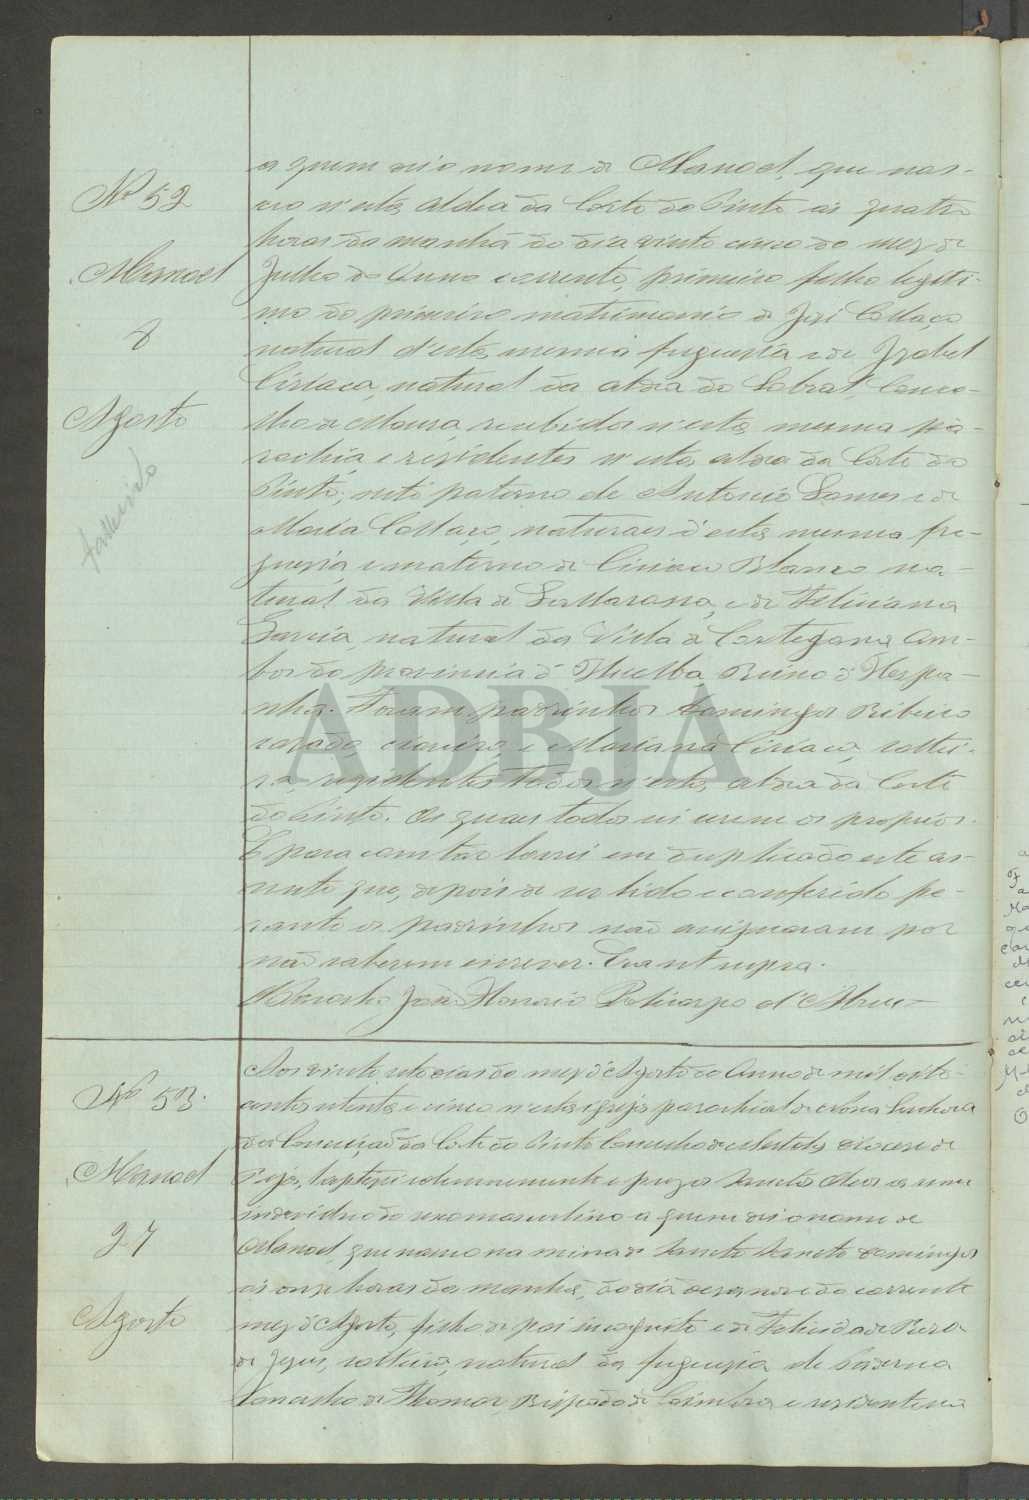 Nº 52
Manoel
8
Agosto
fallecido
a quem dei o nome de Manoel, que nas-
ceo n'esta aldea da Corte do Pinto ás quatro
horas da manhã do dia vinte cinco do mez de
Julho do Anno corrente, primeiro filho legiti-
mo do primeiro matrimonio de José Collaço
natural d'esta mesma freguesia e de Izabel
Ciriaca, natural da aldea do Sobral, Conce-
lho de Moura, recebidos n'esta mesma pa-
rochia, e residentes n'esta aldea da Corte do
Pinto; neto paterno de Antonio Gomes e de
Maria Collaço, naturaes d'esta mesma fre-
guesia, e materno de Ciriaco Blanco na-
tural da Villa de, e de Feliciana
Garcia, natural da Villa de Cortegana Am-
bos da provincia d'Huelba, Reino d'Hespa-
nha. Foram padrinhos Domingos Ribeiro
casado, e Marianna Ciriaca, soltei-
ra, residentes todos n'esta aldea da Corte
do Pinto. Os quaes todos sei serem os proprios.
E para constar lavrei em duplicado este as-
sento que, depois de ser lido e conferido pe-
rante os padrinhos não assignaram por
não saberem escrever. Era ut supra.
O Parocho João Honorio Policarpo d'Abreu
Nº 53.
Manoel
27
Agosto
Aos vinte sete dias do mez d'Agosto do Anno de mil oito-
centos oitenta e cinco n'esta igreja parochial de Nossa Senhora
da Conceição da Corte do Pinto Concelho de Mertola, diocese de
Beja, baptizei solemnemente e puz os Sanctos Oleos a um
individuo do sexo masculino a quem dei o nome de
Manoel, que nasceo na mina de Domingos
ás onze horas da manhã, do dia dezanove do corrente
mez d'Agosto, filho de pai incognito e de Felicidade Rosa
de Jezus, solteira, natural da freguesia de
Concelho de Thomar, Bispado de Coimbra e residente na
ADBJA